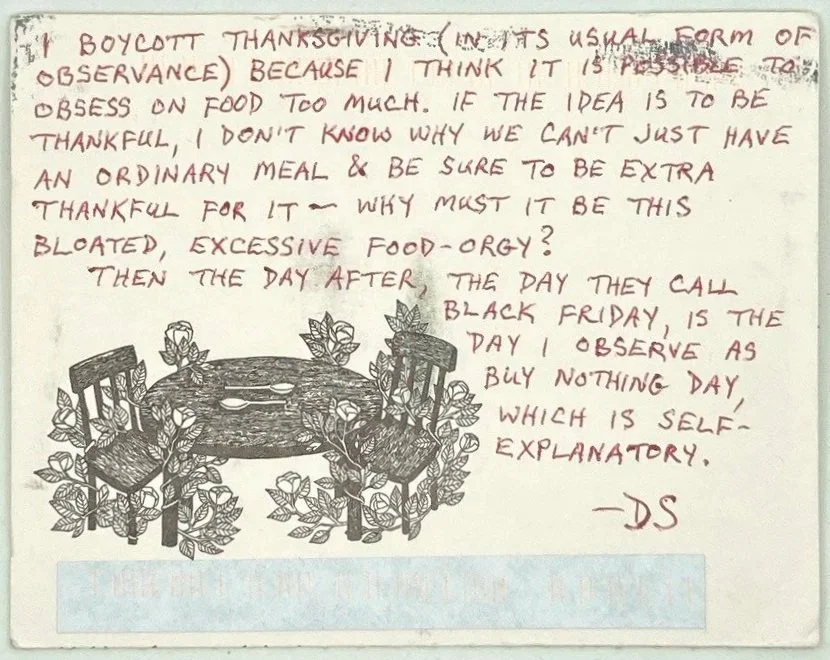 I BOYCOTT THANKSGIVING (IN ITS USUAL FORM OF
OBSERVANCE) BECAUSE I THINK IT IS POSSIBLE TO
OBSESS ON FOOD TOO MUCH. IF THE IDEA IS TO BE
THANKFUL, I DON'T KNOW WHY WE CAN'T JUST HAVE
AN ORDINARY MEAL & BE SURE TO BE EXTRA
THANKFUL FOR IT — WHY MUST IT BE THIS
BLOATED, EXCESSIVE FOOD-ORGY?
THEN THE DAY AFTER, THE DAY THEY CALL
BLACK FRIDAY, IS THE
DAY I OBSERVE AS
BUY NOTHING DAY,
WHICH IS SELF-
EXPLANATORY.
—DS